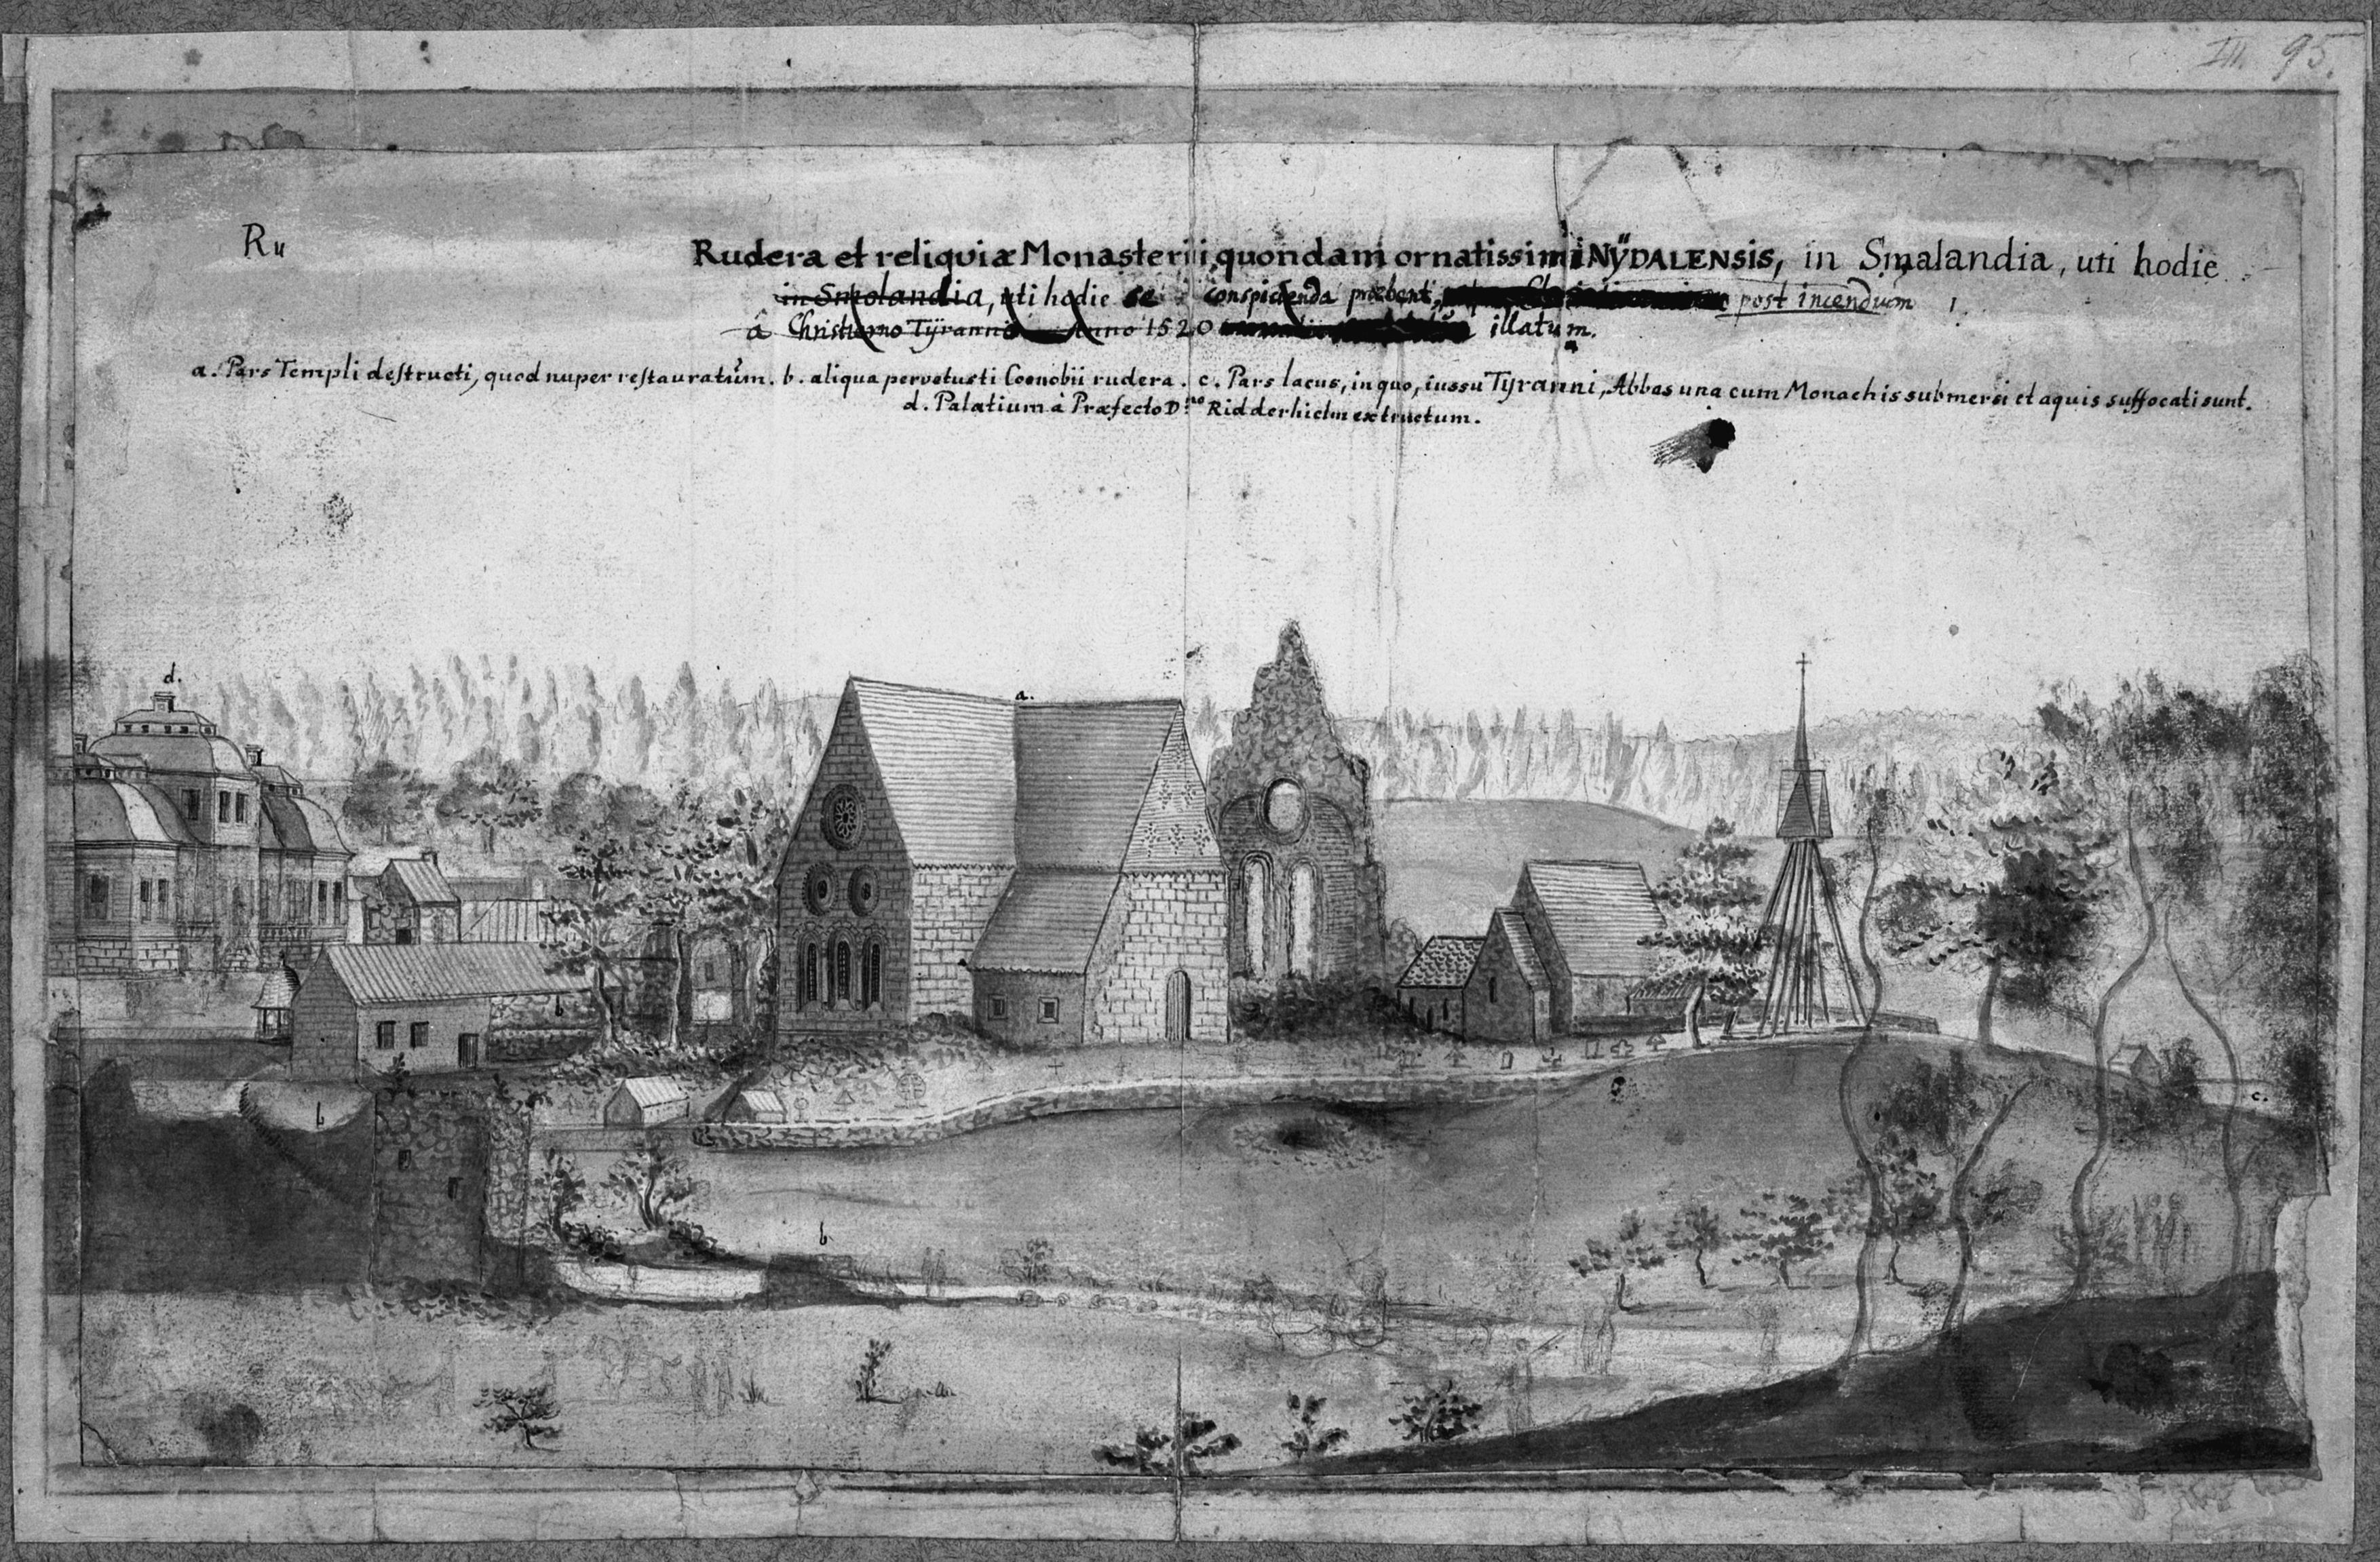 III. 95.
Ru
Rudera et reliqviæ Monasterii quondam ornatissimi NÿDALENSIS, in Smalandia, uti hodie
in Smolandia, uti hodie se conspicienda præbent, post incendium
â Christierno Tÿranno Anno 1520 illatum.
a. Pars Templi destructi, quod nuper restauratum. b. aliqua pervetusti Coenobii rudera. c. Pars lacus, in quo, iussu Tyranni, Abbas una cum Monachis submersi et aquis suffocati sunt.
d. Palatium à Præfecto D:no Ridderhielm extructum.
d.
a.
b
c.
b
b.